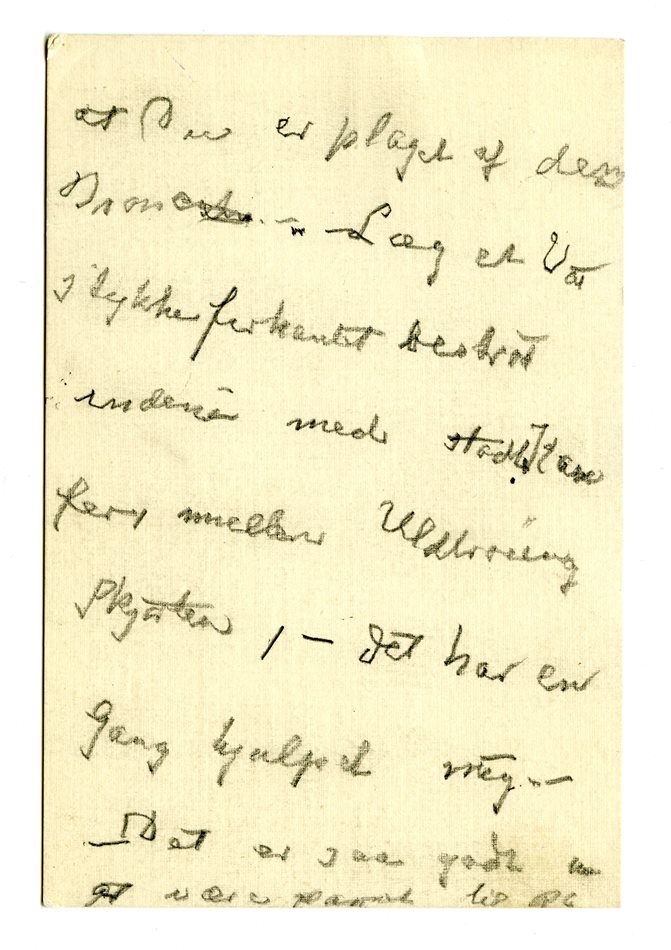 at Du er plaget af den
Læg et Vat
stykke firkantet bestrøt
indeni med stødt Kam
fer, mellem Uldtrøie og
Skjorten, — det har en
Gang hjulpet mig. —
Det er saa godt
at være